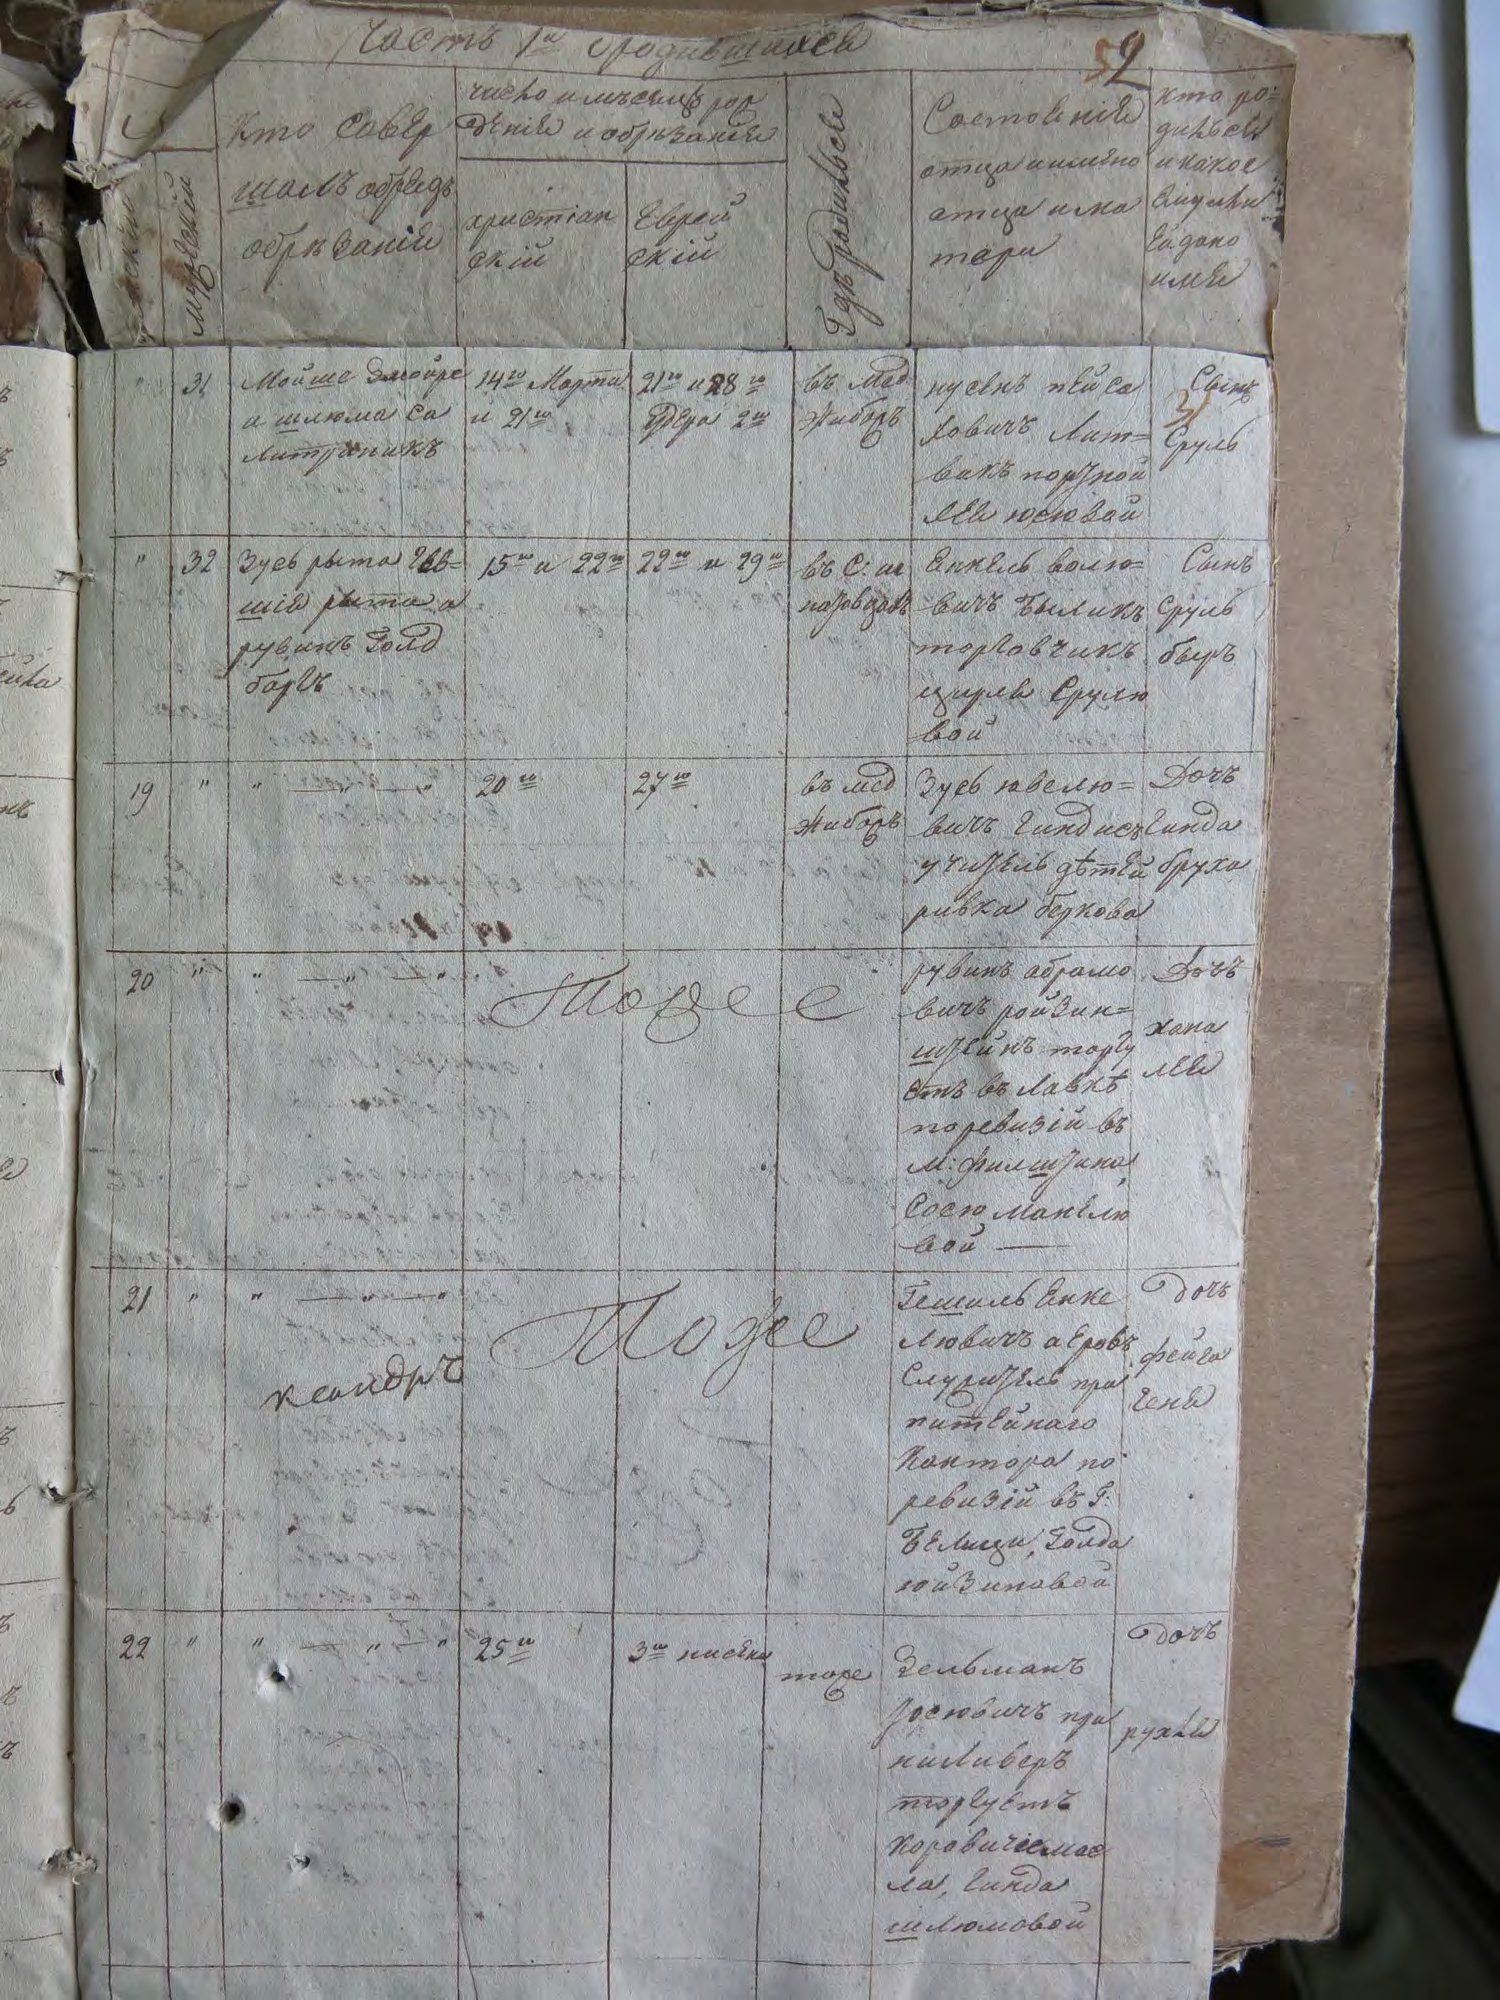 Часть 1я о родившихся
52
женскій
мужескій
Кто совер
шалъ обрядъ
обрѣзанія
число и мѣсяцъ рож
денія и обрѣзанія
христіан
скій
Еврей
скій
Гдѣ родился
Состояніе
отца и имено
отца и ма
тери
Кто ро=
дился
и какое
ему или
ей дано
имя
" 31
Мойше
и шлюма са
литряникъ
14го Марта
и 21го
21го и 28го
Адера 2го
въ Мед
жибожѣ
нусенъ пейса
ховичъ Лит=
вакъ портной
лея юсювой
Сынъ
31
Сруль
" 32
Зусь рыта
шія рыта и
рувинъ Голд
баргъ
15го и 22го
22го и 29го
въ С:
Енкель волю=
вичъ Быликъ
торговчикъ
цирля Срулю
вой
Сынъ
Сруль
беръ
19 " " — " — "
20го
27го
въ мед
жибожѣ
Зусь ювелю=
вичъ Гиндисъ
учитель дѣтей
ривка беркова
Дочъ
Гинда
бруха
20 " " — " — "
Тоже
рувинъ абрамо
вичъ ройзин=
штейнъ торгу
етъ въ лавкѣ
по ревизій въ
м: филштина,
Сосю манелю
вой —
Дочъ
хана
лея
21 " " — " — "
ксандръ
Тоже
Гешиль Енке
лювичъ аеровъ
Служитель при
питейнаго
Контора по
ревизій въ Г:
Бѣлици, Голда
юйзиповой
дочъ
фейга
геня
22 " " — " — "
25го
3го нисена
тоже
Зельманъ
Іосювичъ при
ниливеръ
торгуетъ
коровичіемас
ла, Гинда
шлюмовой
дочъ
рухля